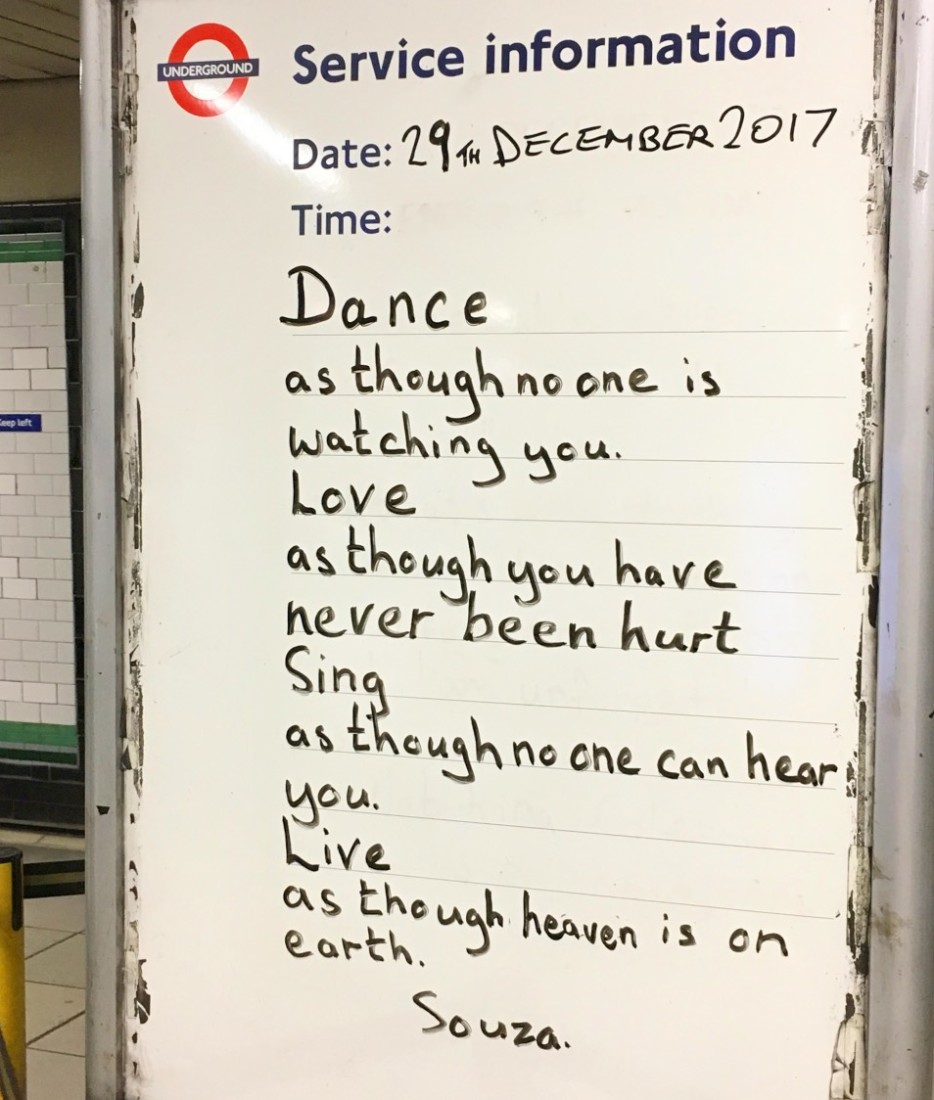 UNDERGROUND
Service information
Date: 29TH DECEMBER 2017
Time:
Dance
as though no one is
watching you.
Love
as though you have
never been hurt
Sing
as though no one can hear
you.
Live
as though heaven is on
earth.
Souza.
Keep left